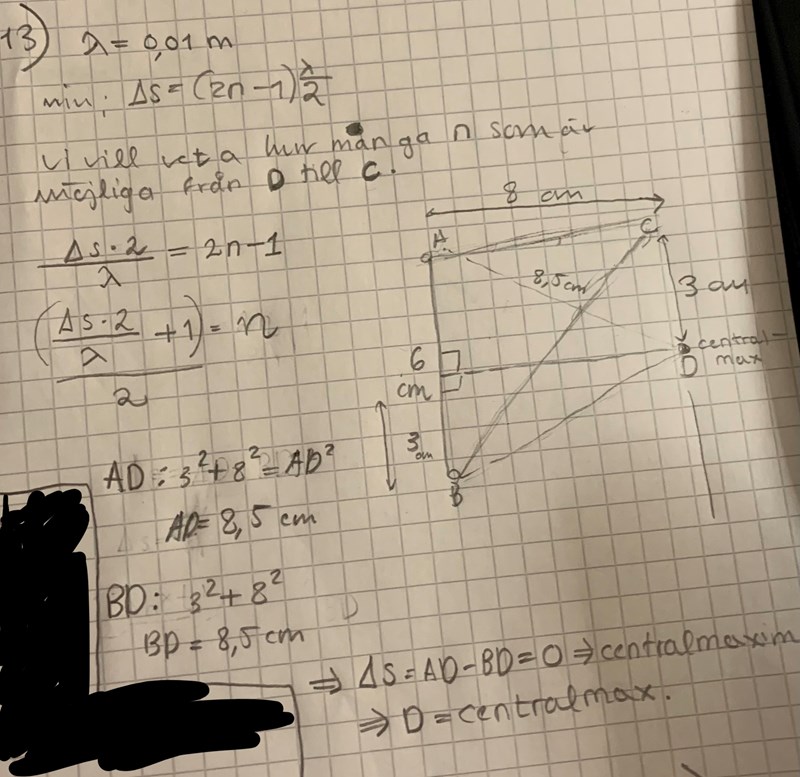 13) λ = 0,01 m
min: Δs = (2n-1) λ/2
vi vill veta hur många n som är
möjliga från D till C.
Δs·2/λ = 2n-1
(Δs·2/λ + 1)/2 = n
8 cm
A
C
8,5 cm
3 cm
6
cm
central-
D max
3
cm
B
AD: 3²+8² = AD²
AD = 8,5 cm
BD: 3²+8²
BD = 8,5 cm
⇒ Δs = AD-BD = 0 ⇒ centralmaxim
⇒ D = centralmax.